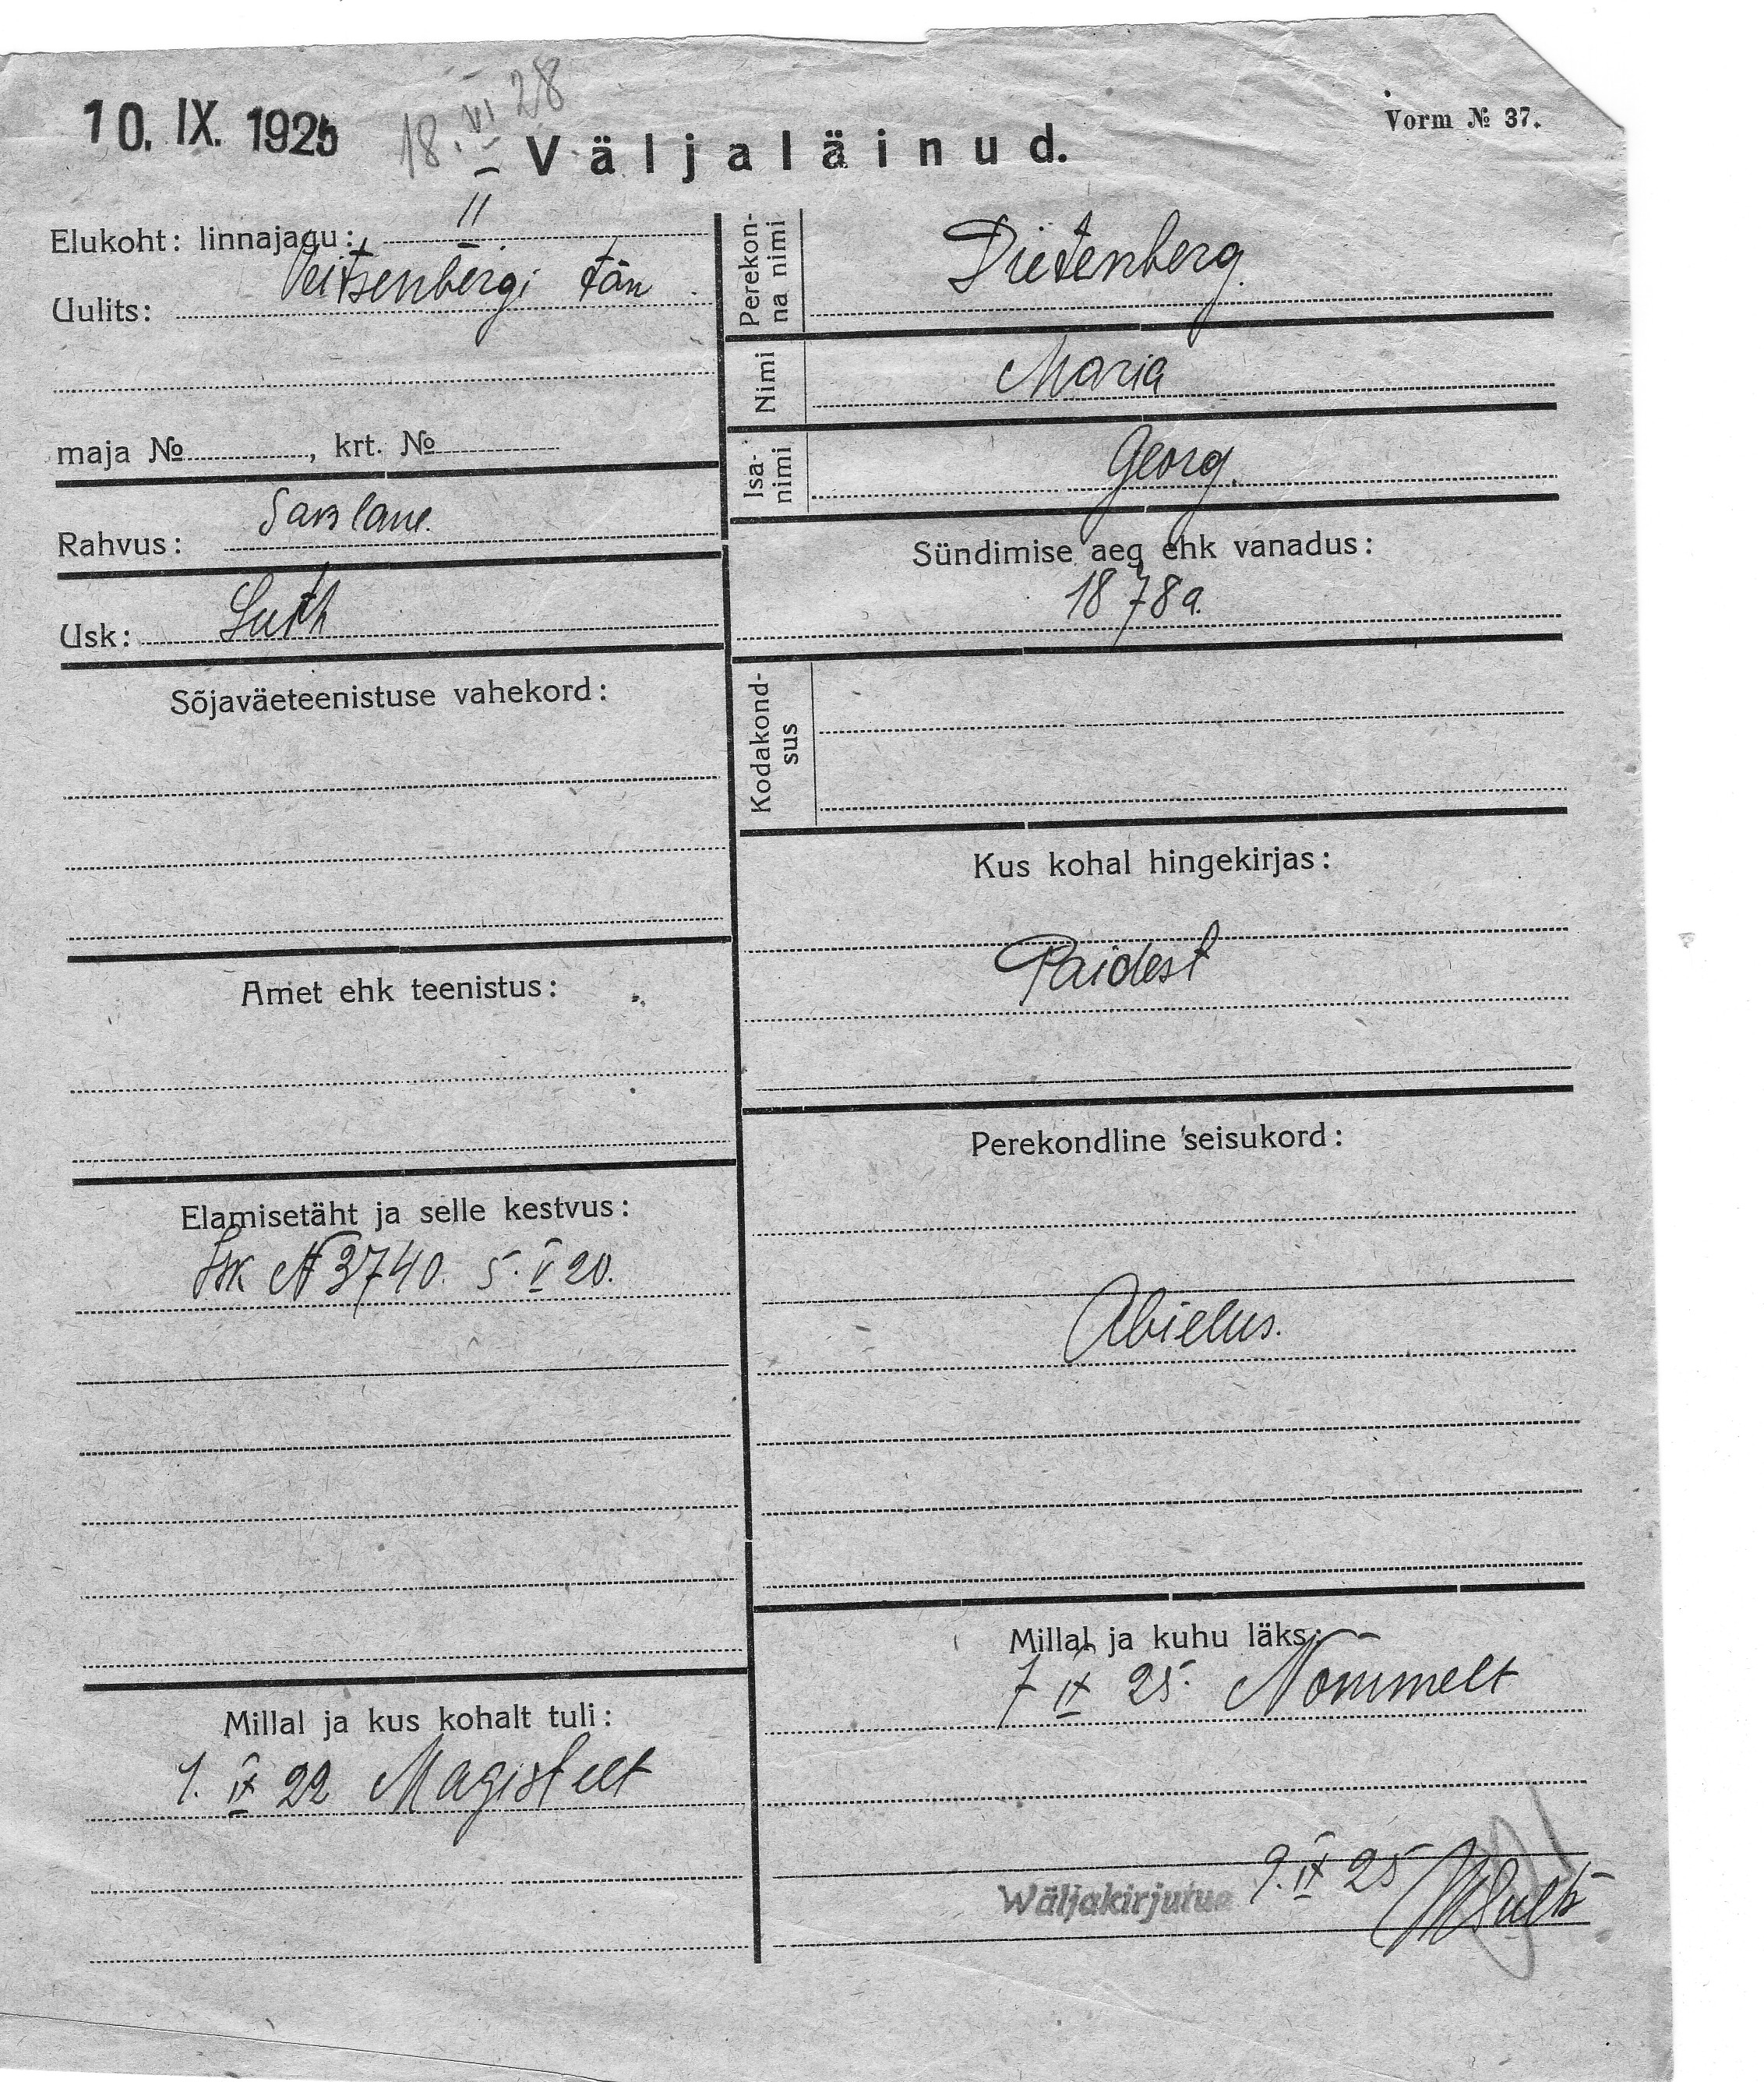 10. IX. 1925
18. VI 28
Vorm № 37.
Väljaläinud.
Elukoht: linnajagu: II
Uulits: Veitsenbergi tän.
maja № , krt. №
Rahvus: Sakslane.
Usk: Luth
Sõjaväeteenistuse vahekord:
Amet ehk teenistus:
Elamisetäht ja selle kestvus:
Isk № 3740. 5. V 20.
Millal ja kus kohalt tuli:
1. IX 22 Magistelt
Perekon-
na nimi
Dietenberg.
Nimi Maria
Isa-
nimi
Georg.
Sündimise aeg ehk vanadus:
1878 a.
Kodakond-
sus
Kus kohal hingekirjas:
Paidest
Perekondline seisukord:
Abielus.
Millal ja kuhu läks:
7 IX 25. Nommelt
Wäljakirjutus 9. IX 25